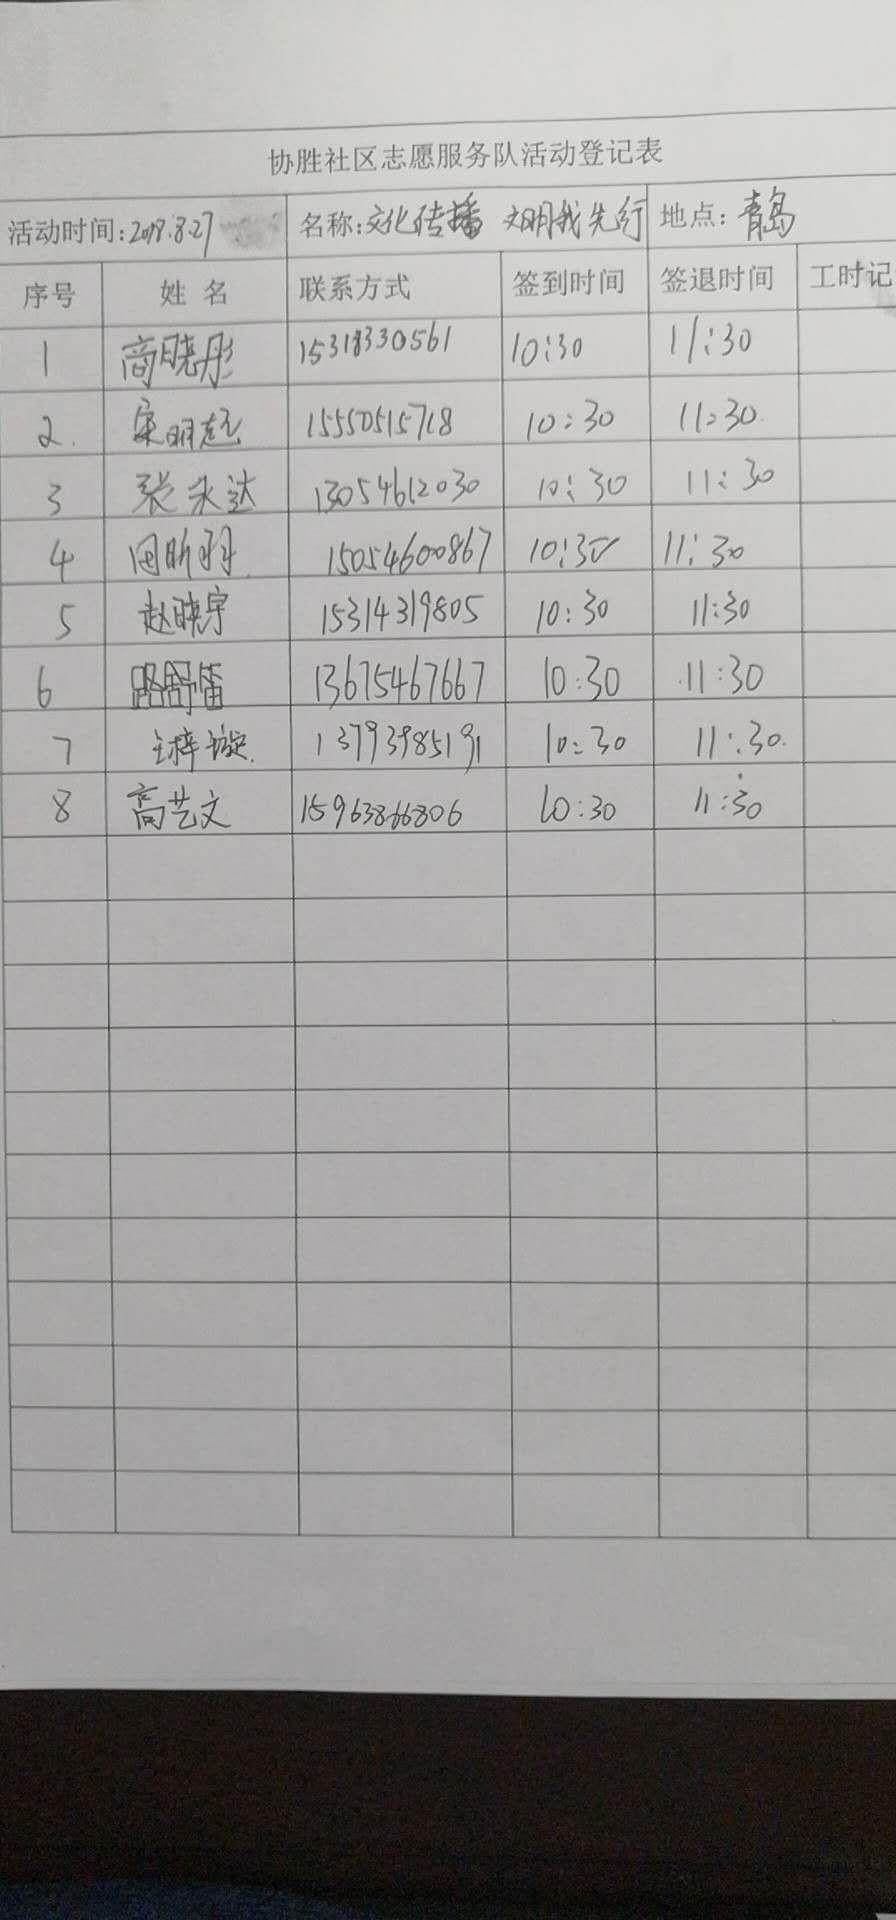 协胜社区志愿服务队活动登记表
活动时间:2018.8.27 名称:文化传播 文明我先行 地点:青岛
序号 姓名 联系方式 签到时间 签退时间 工时记
1 商晓彤 15318330561 10:30 11:30
2. 宋明起 15550515718 10:30 11:30.
3 张永达 13054612030 10:30 11:30
4 田昕羽 15054600867 10:30 11:30
5 赵晓宇 15314319805 10:30 11:30
6 路舒笛 13675467667 10:30 11:30
7 王梓璇 13793985191 10:30 11:30.
8 高艺文 15963866806 10:30 11:30